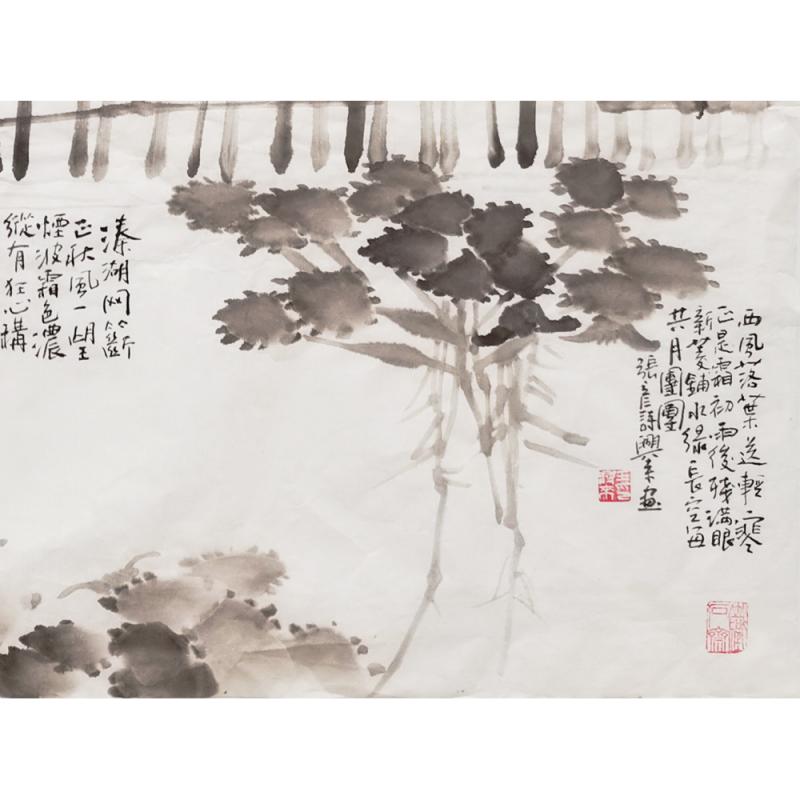 西風落葉送輕寒
正是霜初雨後殘滿眼
新菱鋪水緑長空每
共月團團
張彥詩興來畫
溱湖网簖
正秋風一望
煙波霜色濃
縱有狂心搆